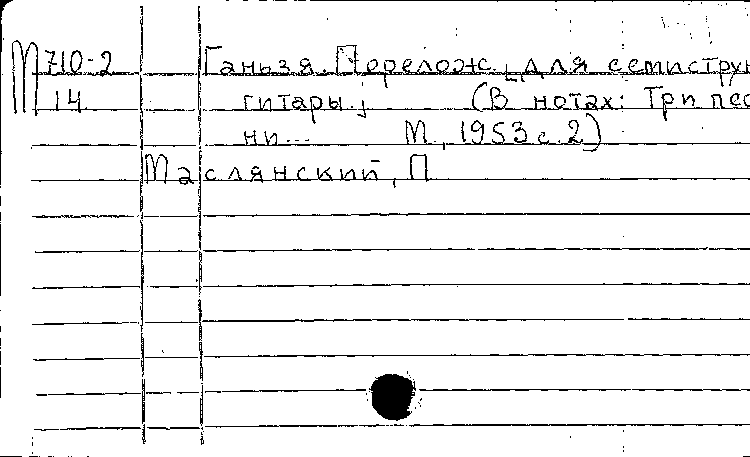 М 710-2 Ганьзя. Перелож. [для семистру
14 гитары.] (В нотах: Три пес
ни... М., 1953 с. 2)
Маслянский, П